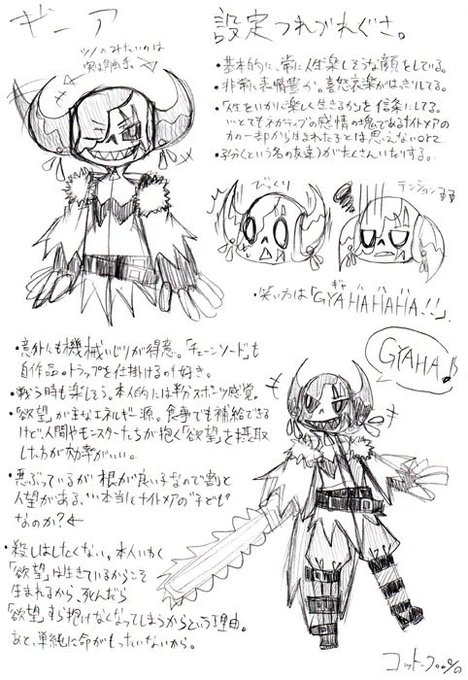 ギニア
設定つれづれぐさ。
ツノみたいのは
実は触手。
・基本的に、常に人生楽しそうな顔をしている。
・非常に表情豊か。喜怒哀楽がはっきりしてる。
・人生をいかに楽しく生きるかを信条にしてる。
いとてもネガティブの感情の塊であるナイトメアの
力の一部から生まれた子とは思えないorz
・子分(という名の友達)がたくさんいたりする。
びっくり
テンション
・笑い方は「GYAHAHAHA!!」
ギャ ハ ハ ハ
・意外にも機械いじりが得意。「チェーンソード」も
自作品。トラップを仕掛けるのも好き。
・戦う時も楽しそう。本人的には半分スポーツ感覚。
・「欲望」が主なエネルギー源。食事でも補給できる
けど、人間やモンスターたちが抱く「欲望」を摂取
した方が効率がいい。
・悪ぶっているが根が良い子なので割と
人望がある。…本当にナイトメアの"子ども"
なのか?←
・殺しはしたくない。本人いわく
「欲望」は生きているからこそ
生まれるから、死んだら
「欲望」すら抱けなくなってしまうからという理由。
あと、単純に命がもったいないから。
GYAHA♪
コットン100%